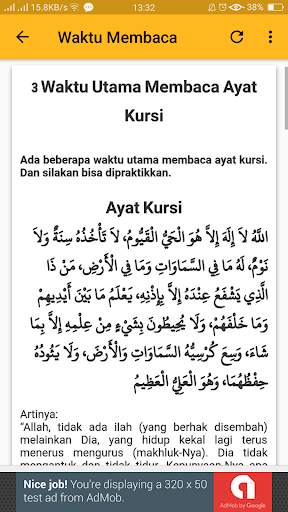 13:32
38%
Waktu Membaca
3 Waktu Utama Membaca Ayat
Kursi
Ada beberapa waktu utama membaca ayat kursi.
Dan silakan bisa dipraktikkan.
Ayat Kursi
اللَّهُ لاَ إِلَهَ إِلاَّ هُوَ الْحَيُّ الْقَيُّومُ، لَا تَأْخُذُهُ سِنَةٌ وَلاَ
نَوْمٌ، لَهُ مَا فِي السَّمَاوَاتِ وَمَا فِي الْأَرْضِ، مَنْ ذَا
الَّذِي يَشْفَعُ عِنْدَهُ إِلاَّ بِإِذْنِهِ، يَعْلَمُ مَا بَيْنَ أَيْدِيهِمْ
وَمَا خَلْفَهُمْ، وَلَا يُحِيطُونَ بِشَيْءٍ مِنْ عِلْمِهِ إِلاَّ بِمَا
شَاءَ، وَسِعَ كُرْسِيُّهُ السَّمَاوَاتِ وَالْأَرْضَ، وَلَا يَئُودُهُ
حِفْظُهُمَا، وَهُوَ الْعَلِيُّ الْعَظِيمُ
Artinya:
“Allah, tidak ada ilah (yang berhak disembah)
melainkan Dia, yang hidup kekal lagi terus
menerus mengurus (makhluk-Nya). Dia tidak
mengantuk dan tidak tidur. Kepunyaan-Nya apa
Nice job! You're displaying a 320 x 50
test ad from AdMob.
AdMob by Google